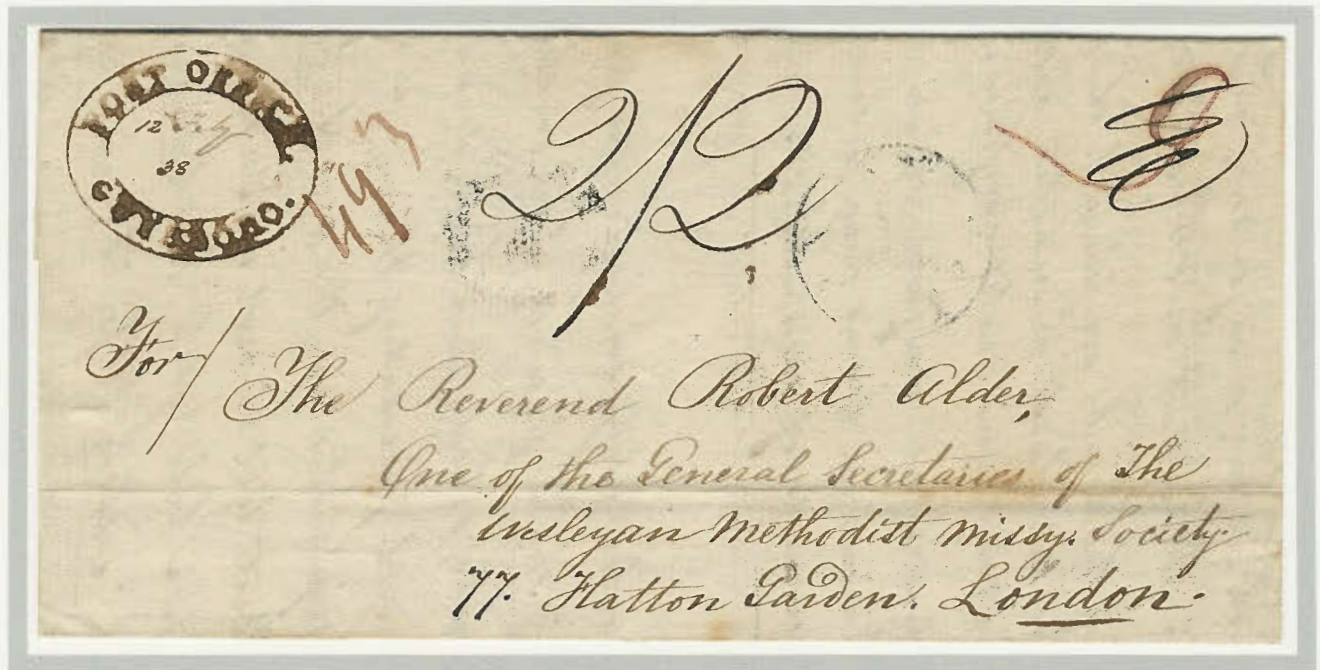 POST OFFICE.
12 July
38
GUYSBORO.
493
2/2
For/ The Reverend Robert Alder,
One of the General Secretaries of The
Wesleyan Methodist Missy. Society
77. Hatton Garden. London.